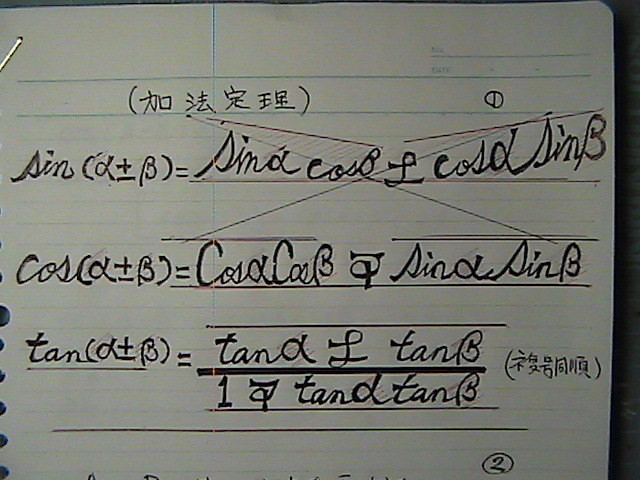 No.
DATE
(加法定理) ①
sin(α±β)=sinα cosβ ± cosα sinβ
cos(α±β)=cosαcosβ ∓ sinα sinβ
tan(α±β)= tanα ± tanβ (複号同順)
1 ∓ tanα tanβ
②